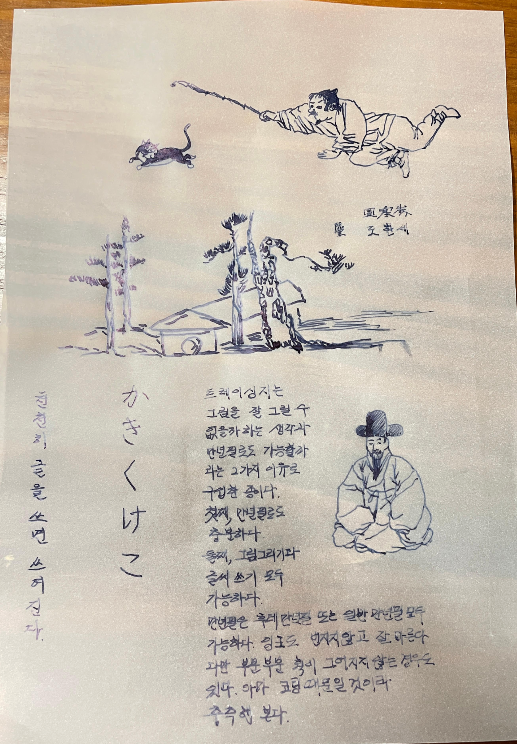 かきくけこ
천천히 글을 쓰면 쓰여진다.
트레이싱지는
그림을 잘 그릴 수
없을까 하는 생각과
만년필로도 가능할까
라는 2가지 이유로
구입한 종이다.
첫째, 만년필로도
충분하다.
둘째, 그림그리기와
글씨 쓰기 모두
가능하다.
만년필은 후데 만년필 또는 일반 만년필 모두
가능하다. 잉크도 번지지않고 잘 마른다
다만 부분부분 획이 그어지지 않는 경우도
있다. 아마 코팅 때문일 것이라
추측해 본다.